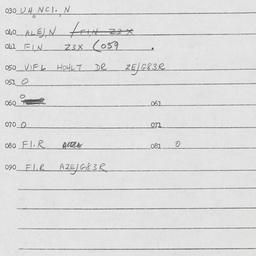 030 UHNCI.N
040 ALEJ.N
041 FIN Z3X (059
050 VIFL HOHLT DR ZEJG83R
051 0
060 0 061
070 0 071
080 FI.R 081 0
090 FI.R AZEJG83R